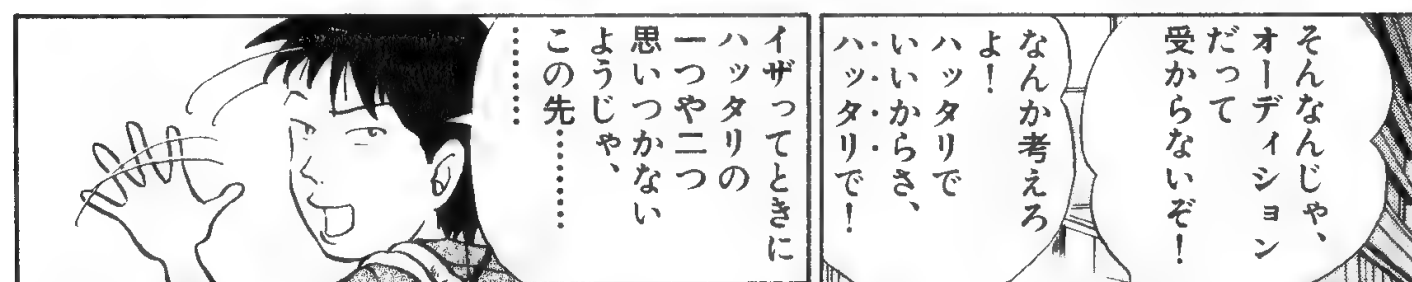 そんなんじゃ、
オーディション
だって
受からないぞ！
なんか考えろ
よ！
ハッタリで
いいからさ、
ハッタリで！
イザってときに
ハッタリの
一つや二つ
思いつかない
ようじゃ、
この先………
……